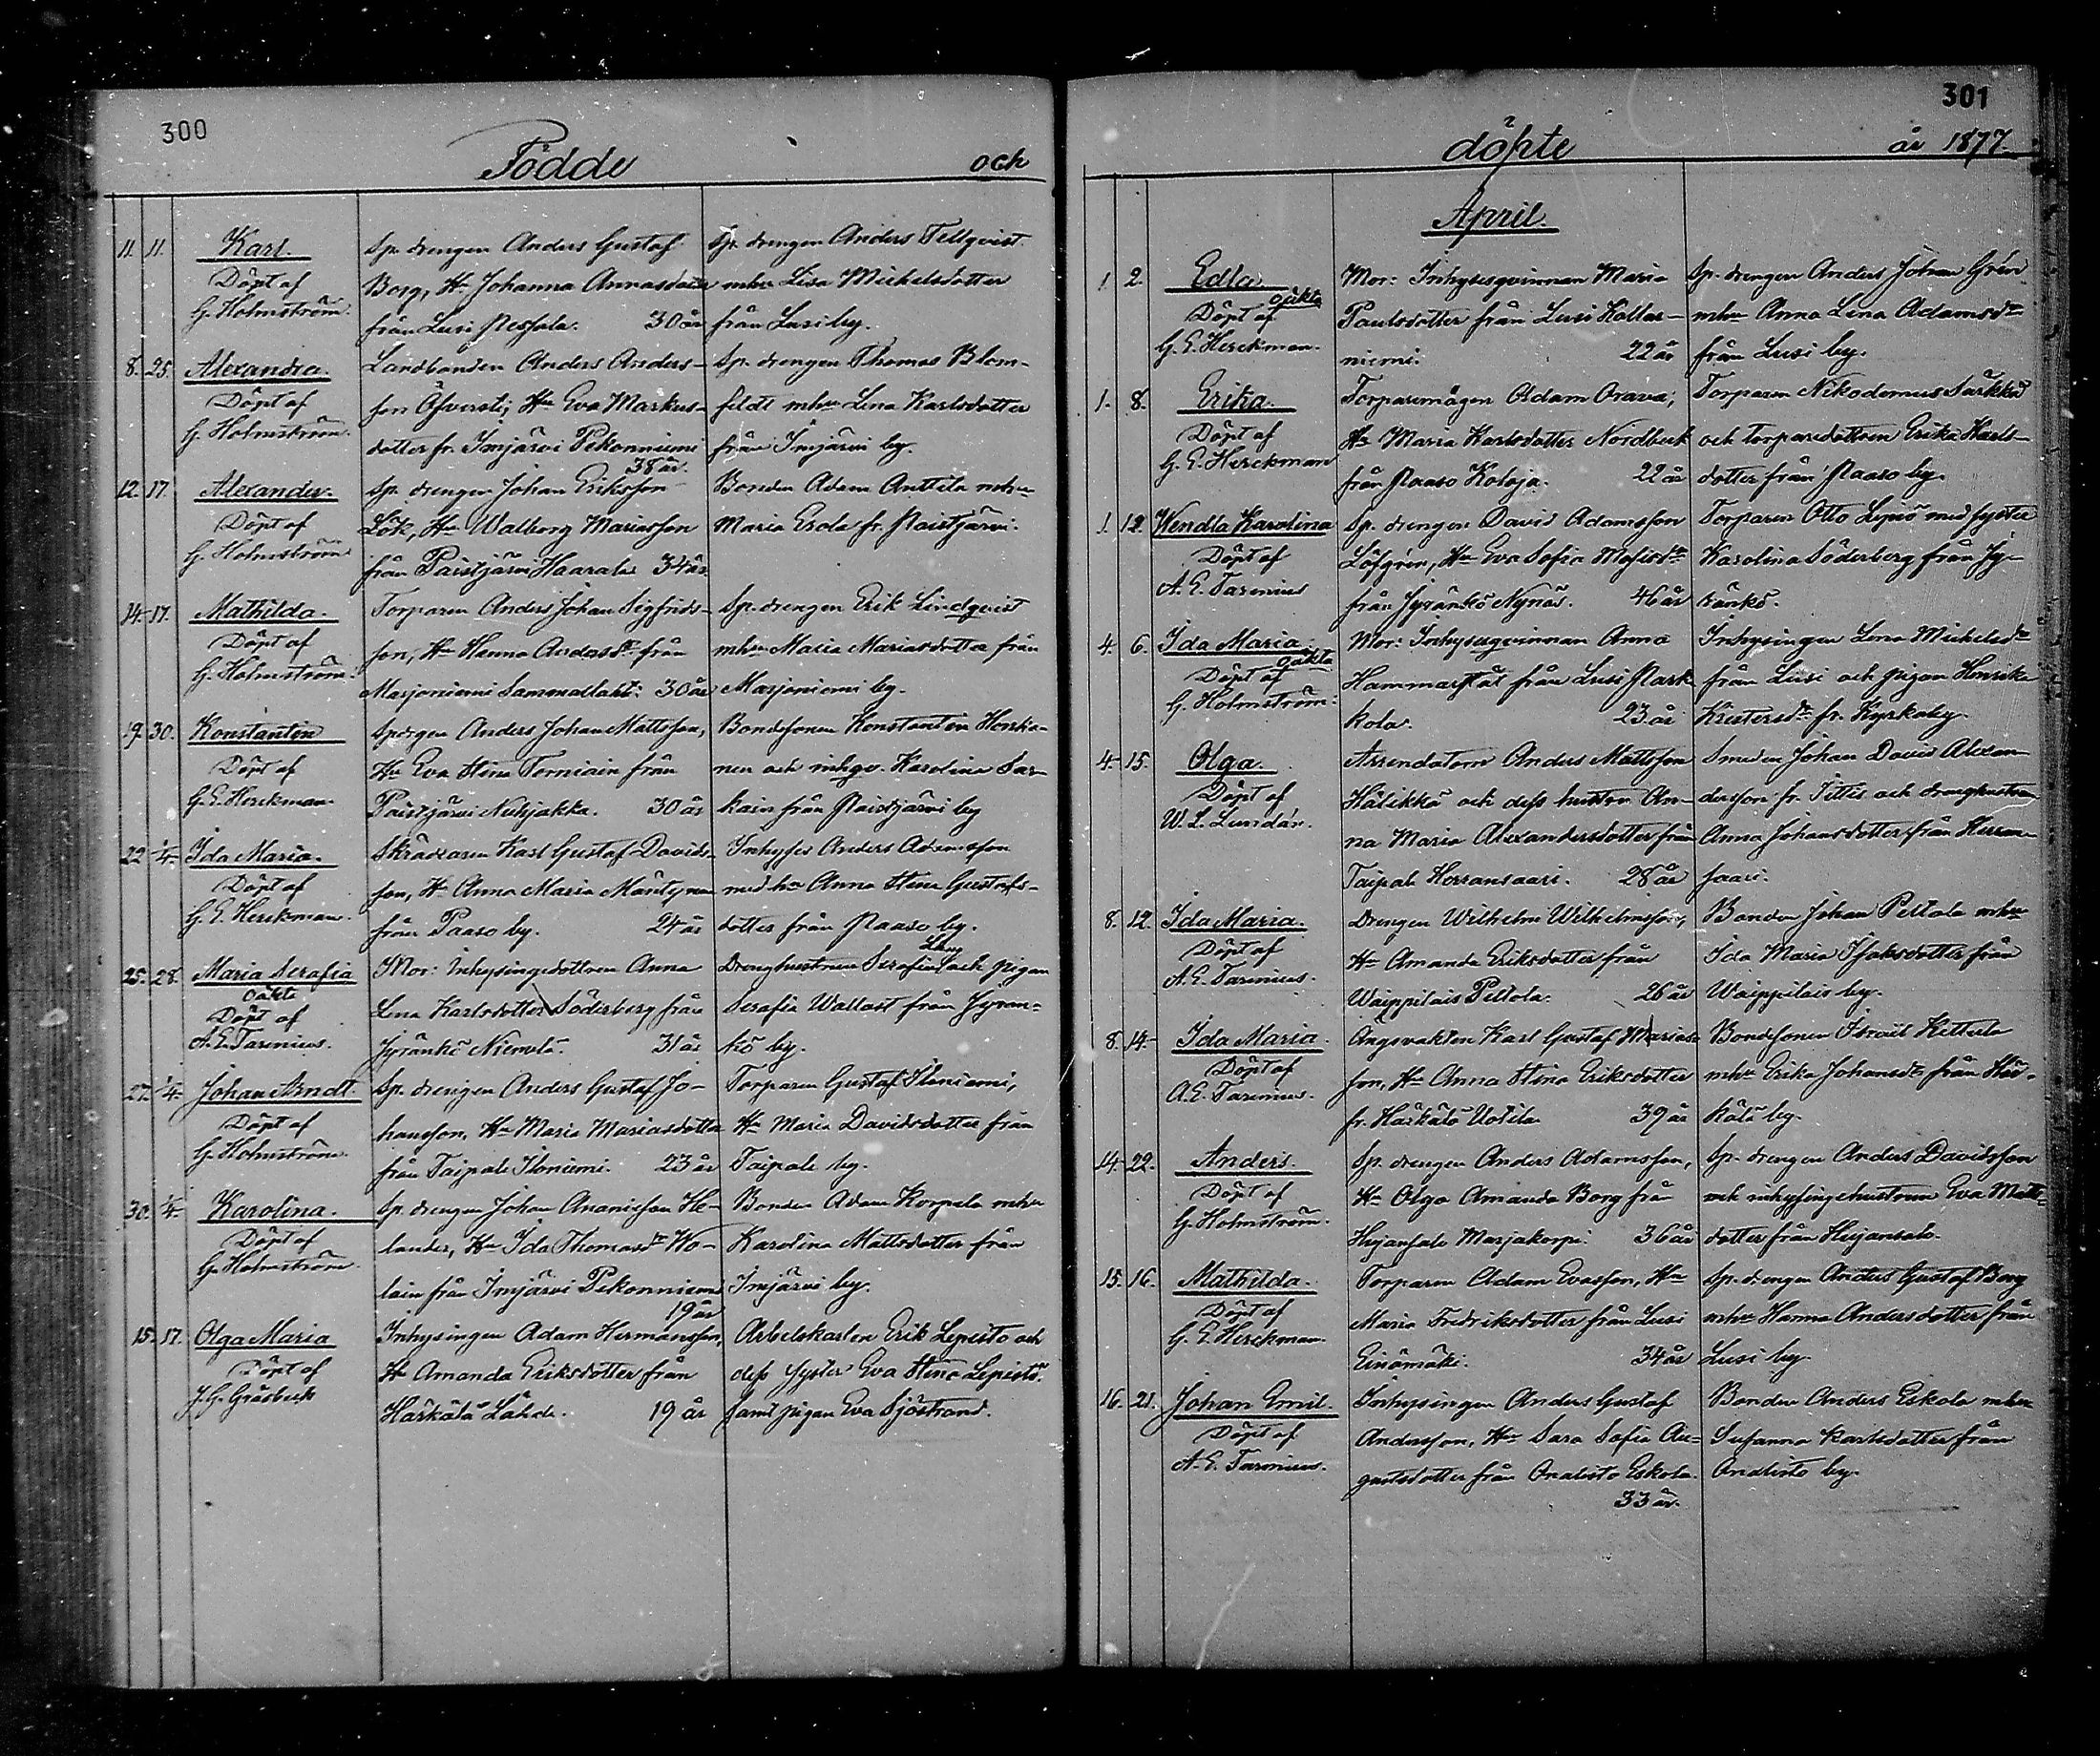 300
Födde och
11. 11. Karl. Sp. drengen Anders Gustaf Sp. drengen Anders Tellqvist
Döpt af Borg, Hu Johanna Annasdotter mhu Lisa Michelsdotter
G. Holmström. från Lusi 30 år från Lusi by.
8. 25. Alexandra. Landbonden Anders Anders- Sp. drengen Thomas Blom-
Döpt af son Öfversti, Hu Eva Markus- feldt mhu Lena Karlsdotter
G. Holmström. dotter fr. Imjärvi Pekonniemi från Imjärvi by.
38 år.
12. 17. Alexander. Sp. drengen Johan Eriksson Bonden Adam Anttila mhu
Döpt af Lök, Hu Walborg Mariasson Maria Erola fr. Paistjärvi.
G. Holmström från Paistjärvi Haarala 34 år.
14. 17. Mathilda. Torparen Anders Johan Sigfrids- Sp. drengen Erik Lindqvist
Döpt af son, Hu Hanna Andersdr från mhu Maria Mariasdotter från
G. Holmström. Marjoniemi Sammallahti 30 år Marjoniemi by.
19. 30. Konstantin Anders Johan Mattsson, Bondesonen Konstantin
Döpt af Hu Eva Stina Torniain från nen och inhqv. Karolina Sar-
G. E. Herckman. Paistjärvi Nuhjakka. 30 år kain från Paistjärvi by
22. 1/4. Ida Maria. Skräddaren Karl Gustaf Davids- Inhyses Anders Adamsson
Döpt af son, Hu Anna Maria Mäntynen med hu Anna Stina Gustafs-
G. E. Herckman. från Paaso by. 24 år dotter från Paaso by.
Lang
25. 28. Maria Serafia Mor: Inhysingedottren Anna Drenghustrun Serafia och pigan
oäkta
Döpt af Lena Karlsdotter Söderberg från Serafia Wallast från Jyrän-
A. E. Tarenius. Jyränkö Niemelä. 31 år kö by.
27. 1/4. Johan Arndt. Sp. drengen Anders Gustaf Jo- Torparen Gustaf Iloniemi,
Döpt af hansson, Hu Maria Mariasdotter Hu Maria Davidsdotter från
G. Holmström. från Taipale Iloniemi. 23 år Taipale by.
30. 1/4. Karolina. Sp. drengen Johan Ananiasson He- Bonden Adam Korpela mhu
Döpt af lander, Hu Ida Thomasdr Wo- Karolina Mattsdotter från
G. Holmström. lain från Imjärvi Pekonniemi Imjärvi by.
19 år
15. 17. Olga Maria Inhysingen Adam Hermansson, Arbetskarlen Erik Lepistö och
Döpt af Hu Amanda Eriksdotter från dess syster Eva Stina Lepistö.
J. G. Gråsbeck Härkälä Lahde. 19 år samt pigan Eva Sjöstrand.
301
döpte år 1877.
April.
1. 2. Edla. Mor: Inhysesqvinnan Maria Sp. drengen Anders Johan Grén
oäkta
Döpt af Paulsdotter från Lusi Kallas- mhu Anna Lena Adamsdr
G. E. Herckman. niemi. 22 år från Lusi by.
1. 8. Erika. Torparemågen Adam Orava, Torparen Nikodemus Särkkä
Döpt af Hu Maria Karlsdotter Nordbeck och torparedottren Erika Karls-
G. E. Herckman från Paaso Koloja. 22 år dotter från Paaso by.
1. 12. Wendla Karolina Sp. drengen David Adamsson Torparen Otto Lepiö med syster
Döpt af Löfgrén, Hu Eva Sofia Karolina Söderberg från Jy-
A. E. Tarenius från Jyränkö Nynäs. 46 år ränkö.
4. 6. Ida Maria. Mor: Inhysesqvinnan Anna Inhysingen Lena Michelsdr
oäkta
Döpt af från Lusi Park- från Lusi och pigan Henrika
G. Holmström. kola. 23 år fr. Kyrkoby.
4. 15. Olga. Arrendatorn Anders Mattsson Smeden Johan David Alexan-
Döpt af Hälikkä och dess hustru An- dersson fr. Tittis och drenghustrun
W. L. Lundán. na Maria Alexandersdotter från Anna Johansdotter från Herran-
Taipale Herransaari. 28 år saari.
8. 12. Ida Maria. Drengen Wilhelm Wilhelmsson, Bonden Johan Peltola mhu
Döpt af Hu Amanda Eriksdotter från Ida Maria Isaksdotter från
A. E. Tarenius. Waippilais Peltola. 26 år Waippilais by.
8. 14. Ida Maria. Ängsvakten Karl Gustaf Marias- Bondesonen Israël Kettula
Döpt af son, Hu Anna Stina Eriksdotter mhu Erika Johansdr från Här-
A. E. Tarenius. fr. Härkälä Uotila 39 år kälä by.
14. 22. Anders. Sp. drengen Anders Adamsson, Sp. drengen Anders Davidsson
Döpt af Hu Olga Amanda Borg från och inhysingehustrun Eva Matts-
G. Holmström. Hujansalo Marjakorpi. 36 år dotter från Hujansalo.
15. 16. Mathilda. Torparen Adam Evasson, Hu Sp. drengen Anders Gustaf Borg
Döpt af Maria Fredriksdotter från Lusi mhu Hanna Andersdotter från
G. E. Herckman. Einämäki. 34 år Lusi by
16. 21. Johan Emil. Inhysingen Anders Gustaf Bonden Anders Eskola mhu
Döpt af Andersson, Hu Sara Sofia Au- Susanna Karlsdotter från
A. E. Tarenius. gustsdotter från Onalisto Eskola. Onalisto by.
33 år.